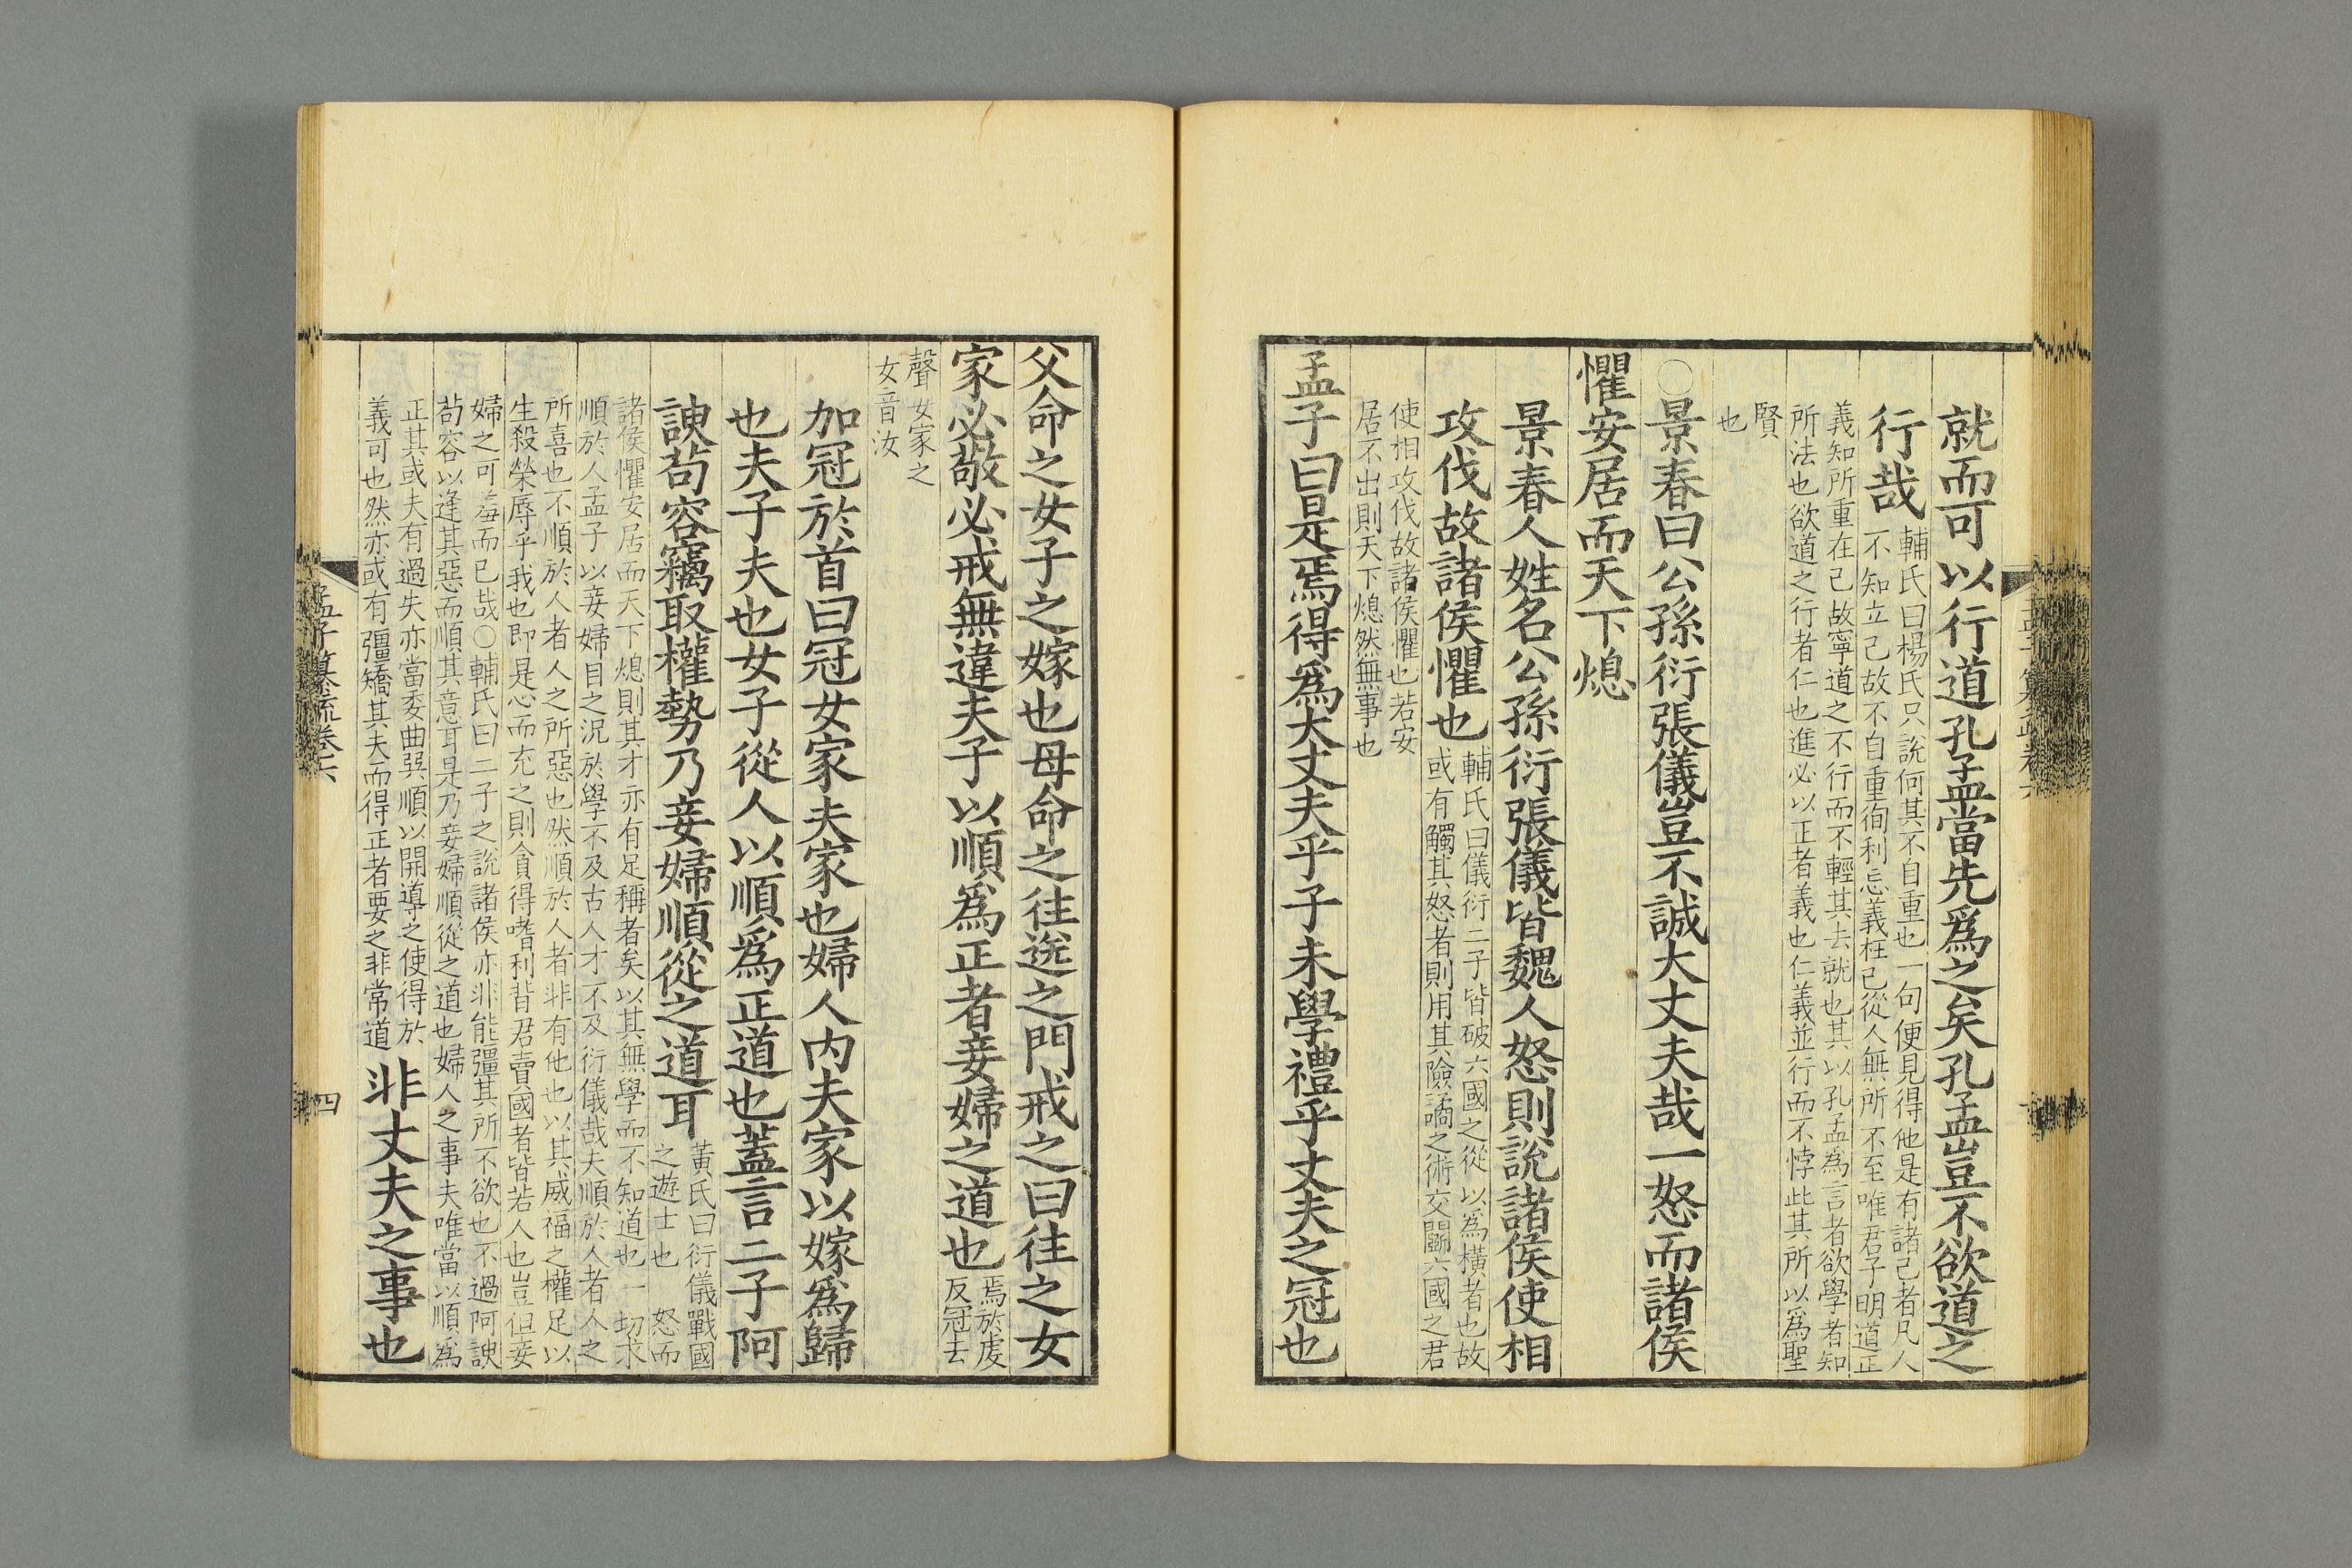 就而可以行道孔孟當先爲之矣孔孟豈不欲道之
行哉
輔氏曰楊氏只說何其不自重也一句便見得他是有諸己者凡人
不知立己故不自重徇利忘義枉己從人無所不至唯君子明道正
義知所重在己故寧道之不行而不輕其去就也其以孔孟爲言者欲學者知
所法也欲道之行者仁也進必以正者義也仁義並行而不悖此其所以爲聖
賢
也
○景春曰公孫衍張儀豈不誠大丈夫哉一怒而諸侯
懼安居而天下熄
景春人姓名公孫衍張儀皆魏人怒則說諸侯使相
攻伐故諸侯懼也
輔氏曰儀衍二子皆破六國之從以爲橫者也故
或有觸其怒者則用其險譎之術交鬭六國之君
使相攻伐故諸侯懼也若安
居不出則天下熄然無事也
孟子曰是焉得爲大丈夫乎子未學禮乎丈夫之冠也
父命之女子之嫁也母命之往送之門戒之曰往之女
家必敬必戒無違夫子以順爲正者妾婦之道也
焉於虔
反冠去
聲女家之
女音汝
加冠於首曰冠女家夫家也婦人内夫家以嫁爲歸
也夫子夫也女子從人以順爲正道也蓋言二子阿
諛苟容竊取權勢乃妾婦順從之道耳
黃氏曰衍儀戰國
之遊士也 怒而
諸侯懼安居而天下熄則其才亦有足稱者矣以其無學而不知道也一切求
順於人孟子以妾婦目之況於學不及古人才不及衍儀哉夫順於人者人之
所喜也不順於人者人之所惡也然順於人者非有他也以其威福之權足以
生殺榮辱乎我也即是心而充之則貪得嗜利背君賣國者皆若人也豈但妾
婦之可羞而已哉○輔氏曰二子之說諸侯亦非能彊其所不欲也不過阿諛
苟容以逢其惡而順其意耳是乃妾婦順從之道也婦人之事夫唯當以順爲
正其或夫有過失亦當委曲巽順以開導之使得於
義可也然亦或有彊矯其夫而得正者要之非常道
非丈夫之事也
孟子纂疏卷六
四